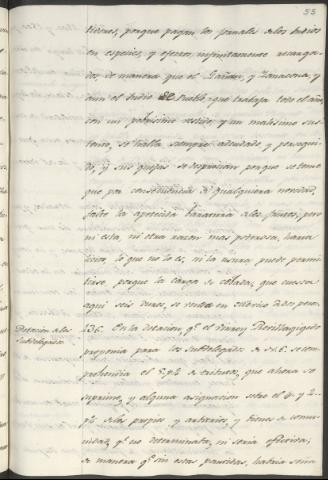 53
tieres, porque pagan los jornales de los Indios
en especies, y efectos infinitamente recarga-
dos, de manera que el Gañan, y
aun el Indio de Pueblo, que trabaja todo el año
con un pobrisimo vestido, y un malisimo sus-
tento, se halla siempre adeudado y persegui-
do, y sus quejas se desprecian porque se teme
que por consecuencia de qualquiera novedad,
falte la apetecida baratura de los frutos, pero
ni esta, ni otra razon mas poderosa, haria
licito, lo que no lo es, ni la usura puede permi-
tirse, porque la carga de cebada, que cuesta
aqui seis duros, se venda en dos pesos.
Dotacion de los
Subdelegados
236. En la dotacion q.e el Virrey Revillagigedo
proponia para los Subdelegados de se com-
prehendia el 5 p% de tributos, que ahora se
suprime, y alguna asignacion sobre el 4 y 2
p% de los propios y arbitrios, y bienes de comu-
nidad, q.e no determinaba, ni seria efectiva;
de manera q.e sin estas partidas, habria